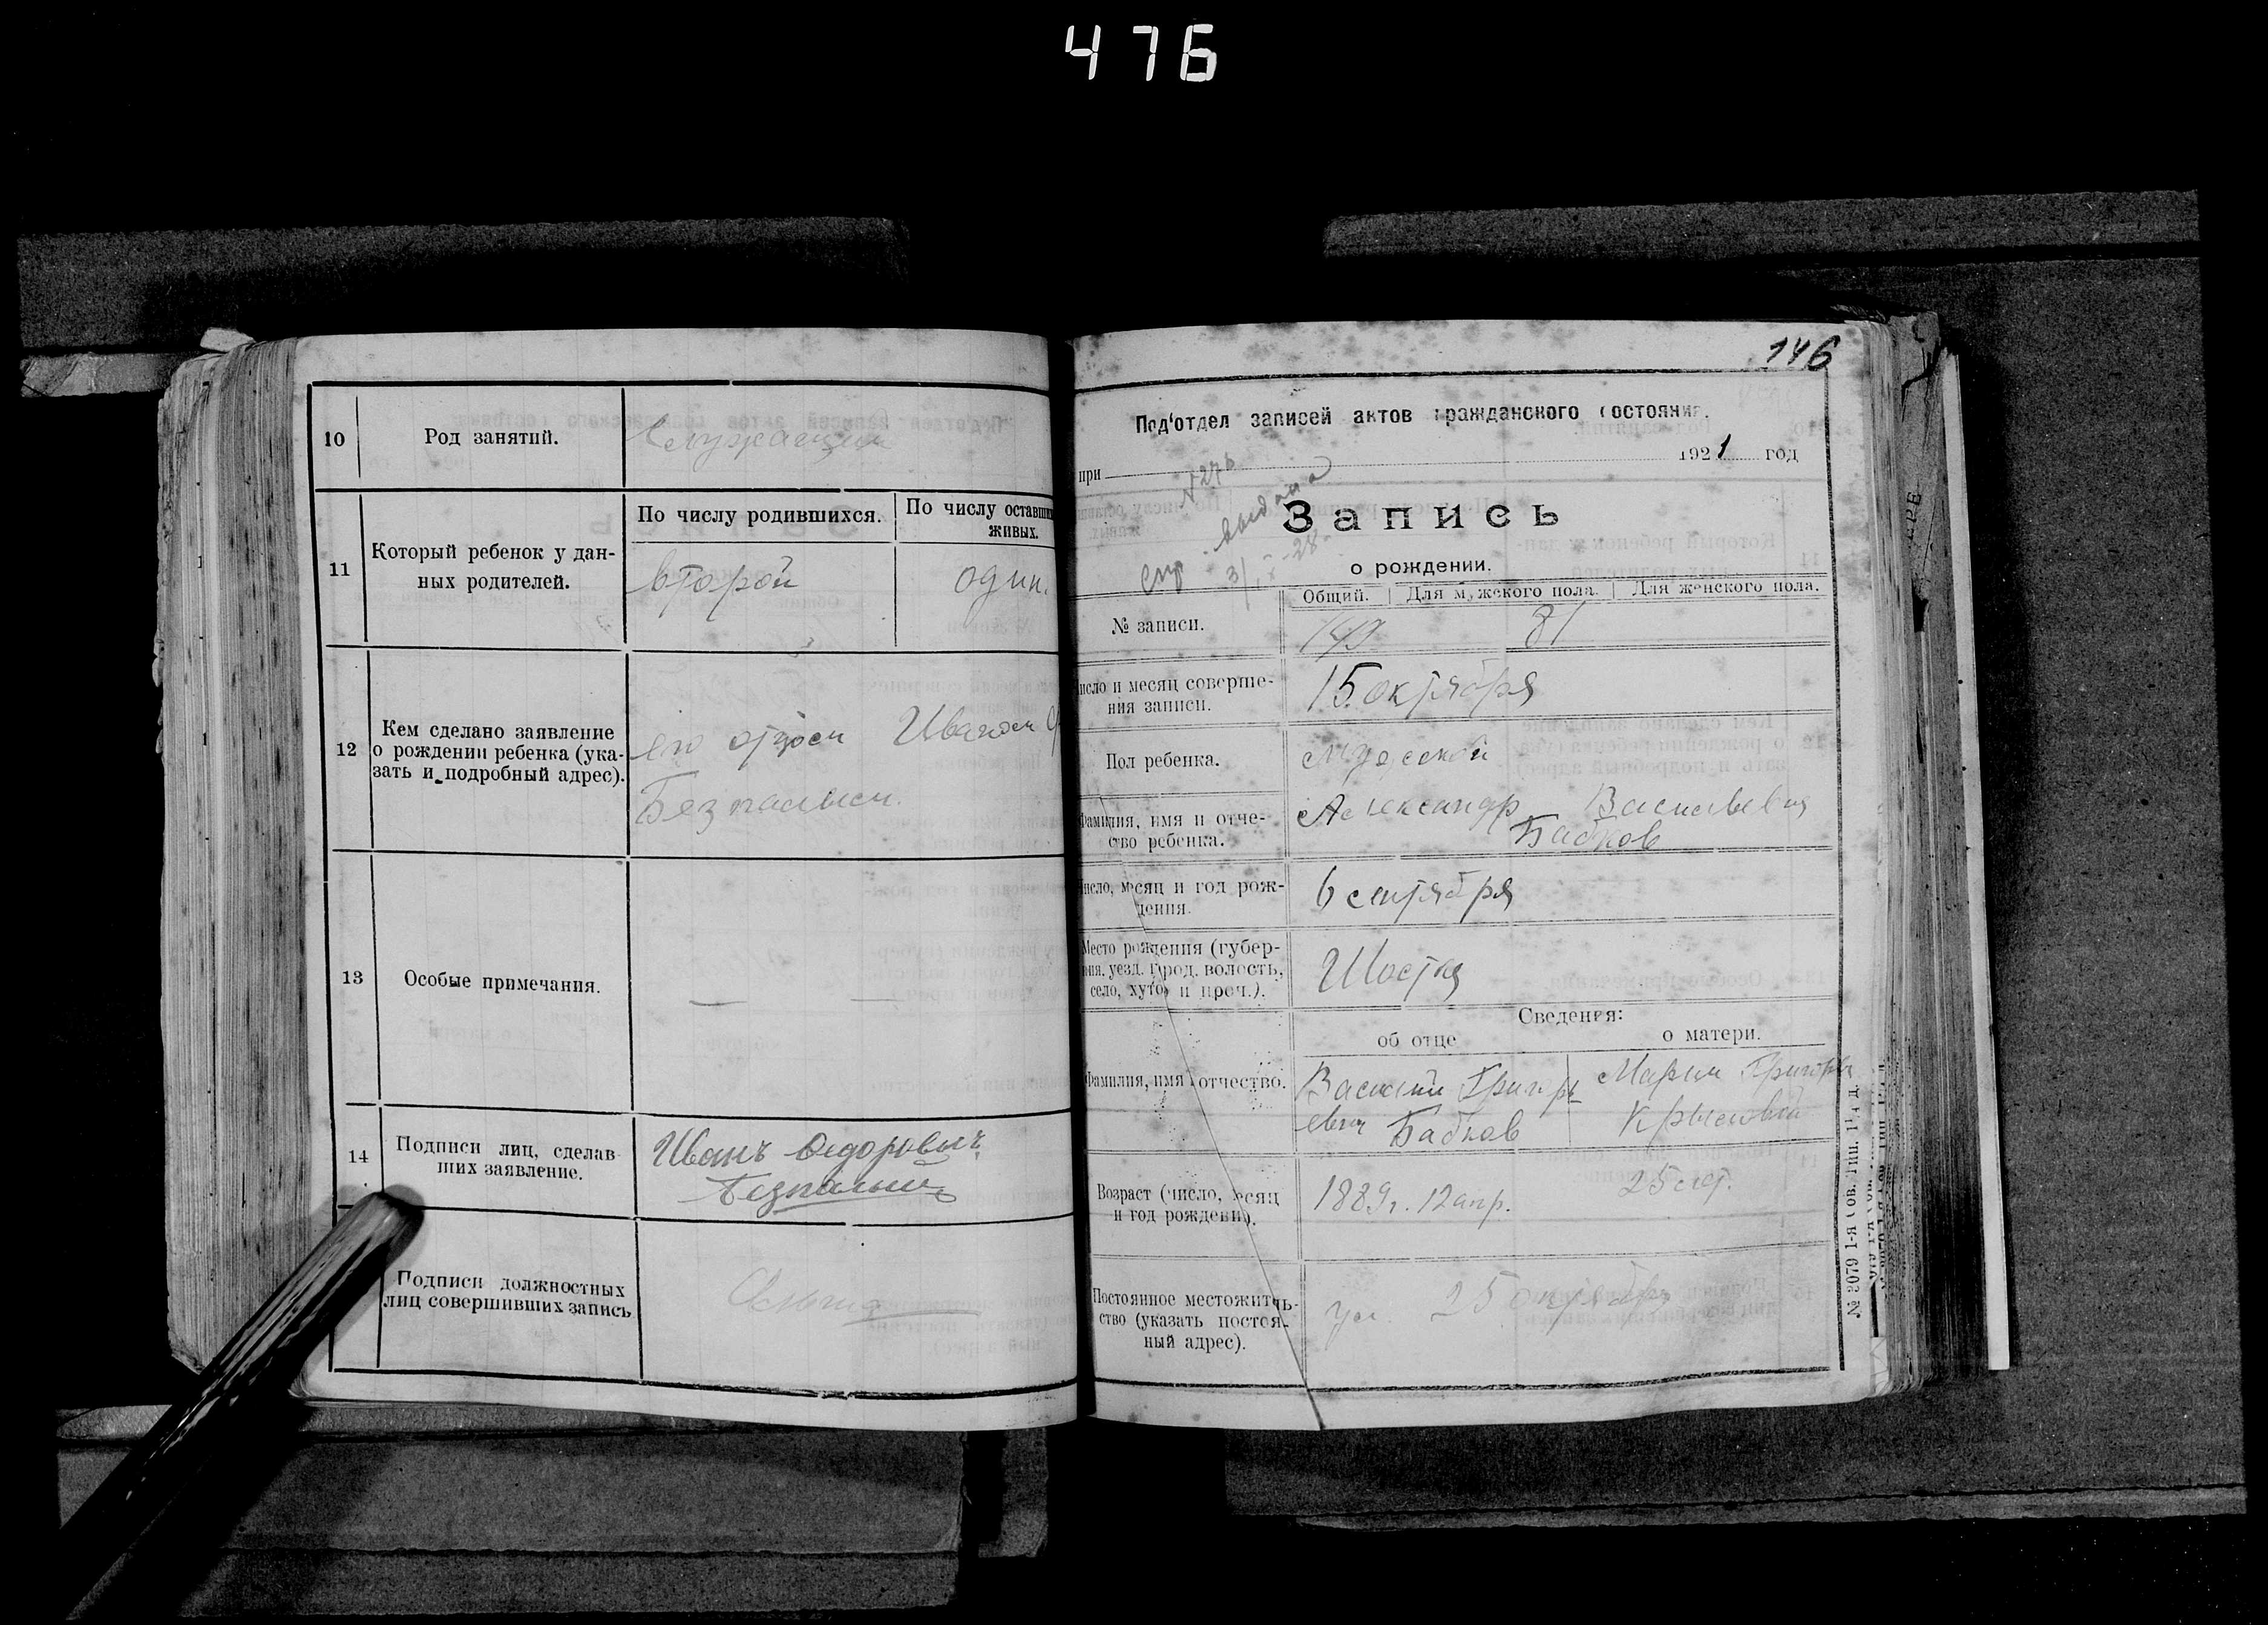 476
10
Род занятий.
Служащий
11
Который ребенок у дан-
ных родителей.
По числу родившихся.
второй
По числу оставши
живых.
один.
12
Кем сделано заявление
о рождении ребенка (ука-
зать и подробный адрес).
его отцом Иваном
Безпалым.
13
Особые примечания.
— —
14
Подписи лиц, сделав-
ших заявление.
Иванъ Федоровичъ
Безпалый
Подписи должностных
лиц совершивших запись
146
Под'отдел записей актов гражданского состояния.
при 1921 год
выдана
Запись
о рождении.
Спр. 28
Общий. Для мужского пола. Для женского пола.
№ записи.
149 81
число и месяц соверше-
ния записи.
15 октября
Пол ребенка.
мужской
Фамилия, имя и отче-
ство ребенка.
Александр Васильевич
Бабков
Число, месяц и год рож-
дения.
6 сентября
Место рождения (губер-
ния, уезд, город, волость,
село, хутор и проч.).
Шостка
Сведения:
об отце о матери.
Фамилия, имя отчество.
Василий Григорь
евич Бабков
Мария Григорьев
Возраст (число, месяц
и год рождения).
1889г. 12 апр.
25 лет.
Постоянное местожитель-
ство (указать постоя-
ный адрес).
ул. 25 октября
№ 3079 1-я Сов. Тип.